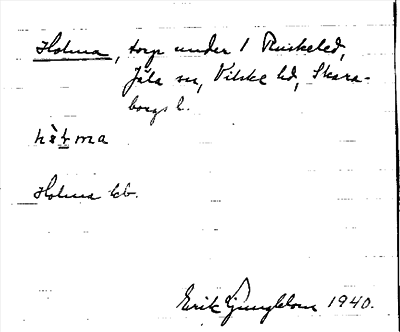 Holma, torp under 1 Ruskeled,
Jäla sn, Vilske hd, Skara-
borgs l.
hòlma
Holma kb.
Erik Ljungblom 1940.